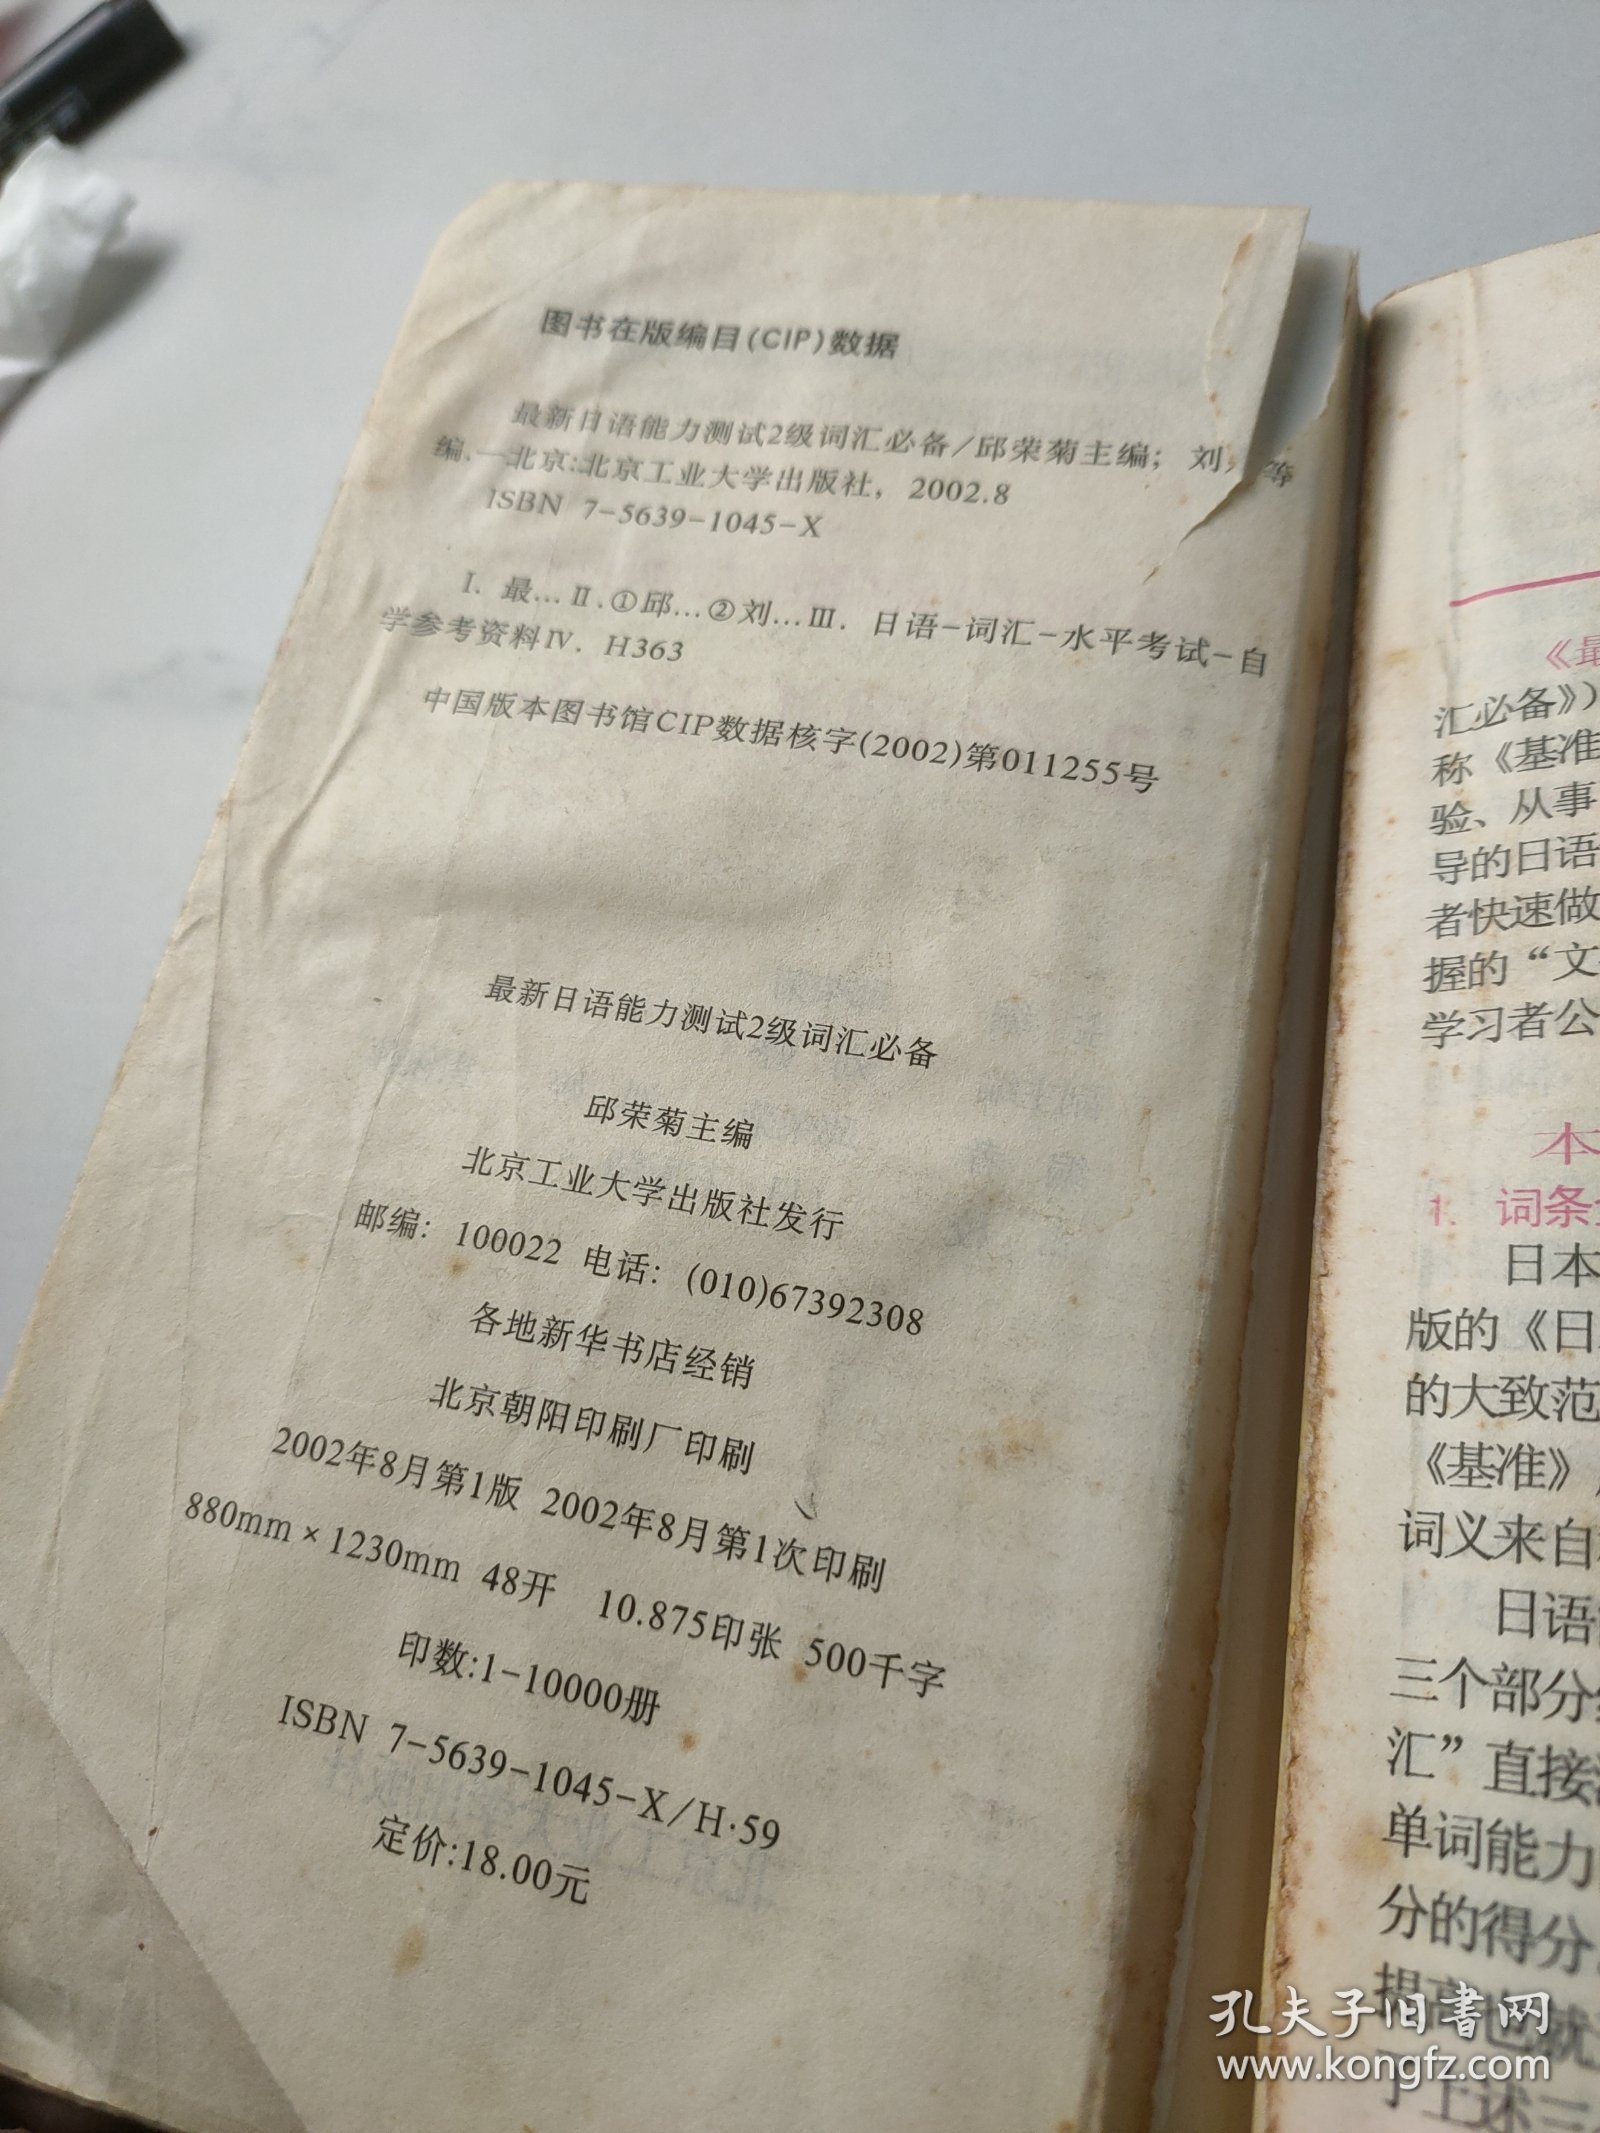 图书在版编目(CIP)数据
最新日语能力测试2级词汇必备/邱荣菊主编；刘
编.—北京:北京工业大学出版社，2002.8
ISBN 7-5639-1045-X
Ⅰ. 最…Ⅱ.①邱…②刘…Ⅲ. 日语-词汇-水平考试-自
学参考资料Ⅳ. H363
中国版本图书馆CIP数据核字(2002)第011255号
最新日语能力测试2级词汇必备
邱荣菊主编
北京工业大学出版社发行
邮编：100022 电话：(010)67392308
各地新华书店经销
北京朝阳印刷厂印刷
2002年8月第1版 2002年8月第1次印刷
880mm×1230mm 48开 10.875印张 500千字
印数:1-10000册
ISBN 7-5639-1045-X/H·59
定价:18.00元
《最
汇必备》）
称《基准
验、从事
导的日语
者快速做
握的“文
学习者公
本
1. 词条
日本
版的《日
的大致范
《基准》
词义来自
日语
三个部分
汇”直接
单词能力
分的得分
提高也就
于上述三
孔夫子旧书网
www.kongfz.com